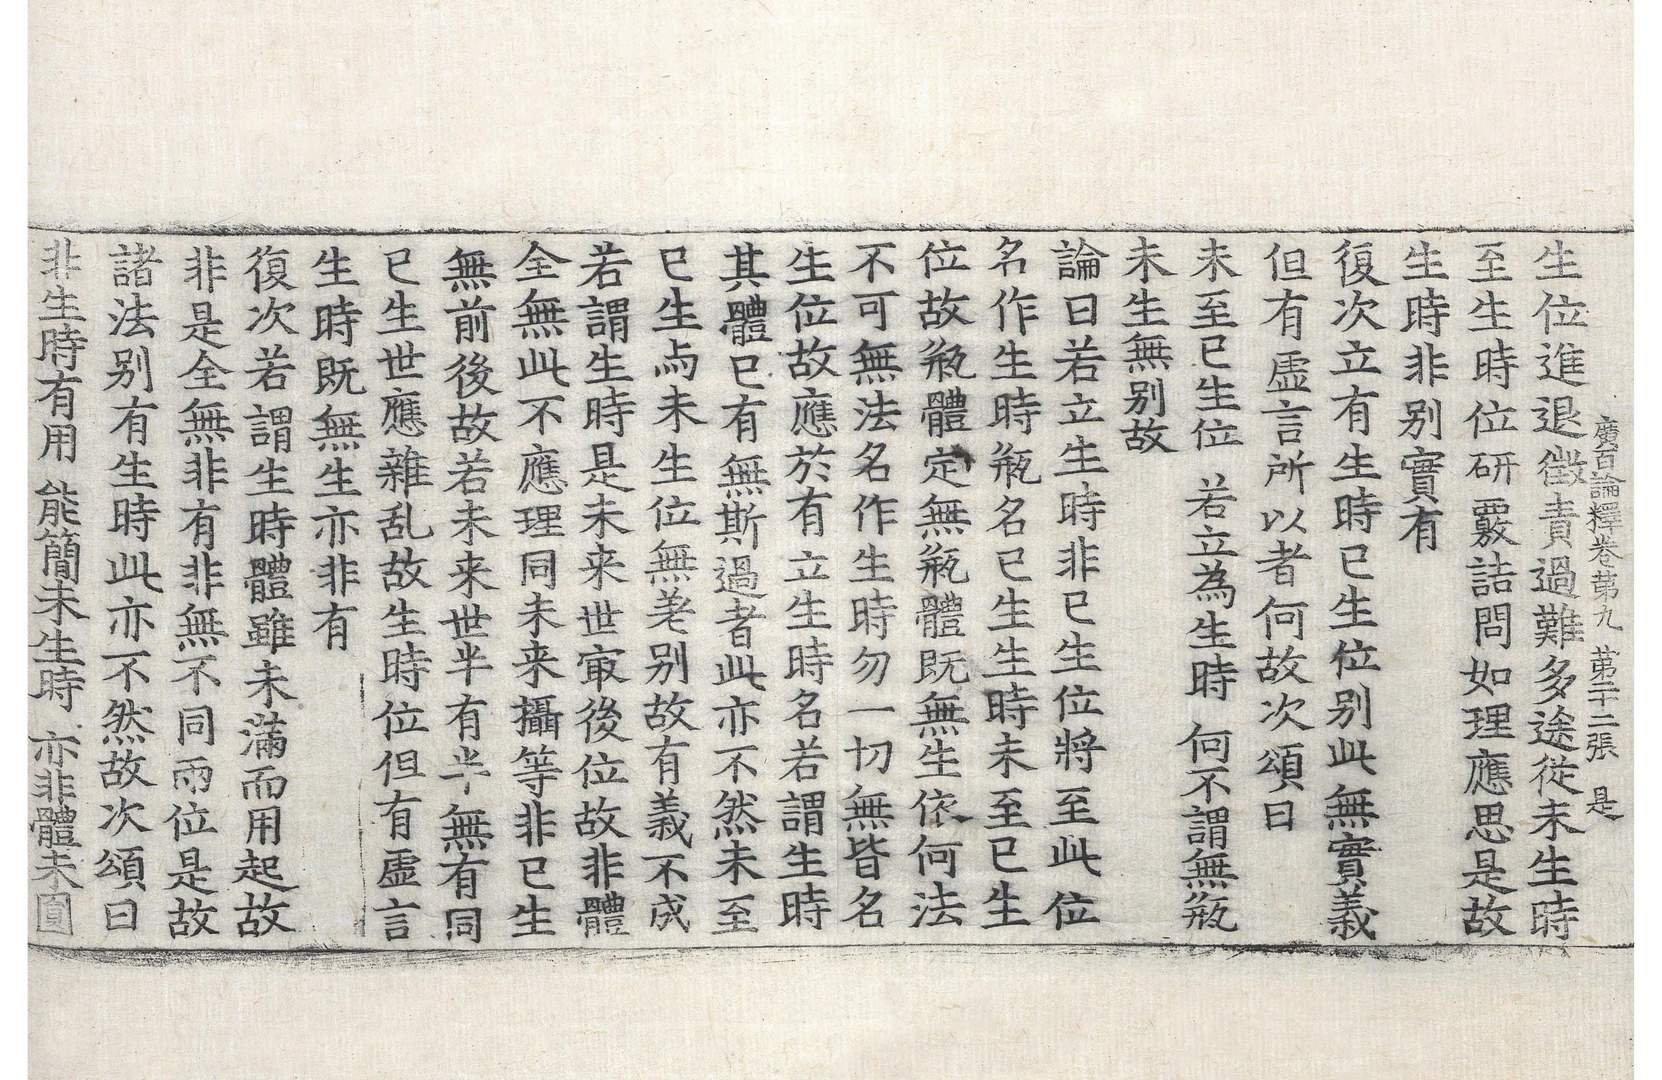 廣百論釋卷苐九　苐二十二張　是
生位進退徵責過難多途從未生時
至生時位研覈詰問如理應思是故
生時非别實有
復次立有生時已生位别此無實義
但有虛言所以者何故次頌曰
未至已生位　若立為生時　何不謂無瓶
未生無别故
論曰若立生時非已生位將至此位
名作生時瓶名已生生時未至已生
位故瓶體定無瓶體既無生依何法
不可無法名作生時勿一切無皆名
生位故應於有立生時名若謂生時
其體已有無斯過者此亦不然未至
已生与未生位無差别故有義不成
若謂生時是未来世㝡後位故非體
全無此不應理同未来攝等非已生
無前後故若未来世半有半無有同
已生世應雜乱故生時位但有虛言
生時既無生亦非有
復次若謂生時體雖未滿而用起故
非是全無非有非無不同兩位是故
諸法别有生時此亦不然故次頌曰
非生時有用　能簡未生時　亦非體未圓